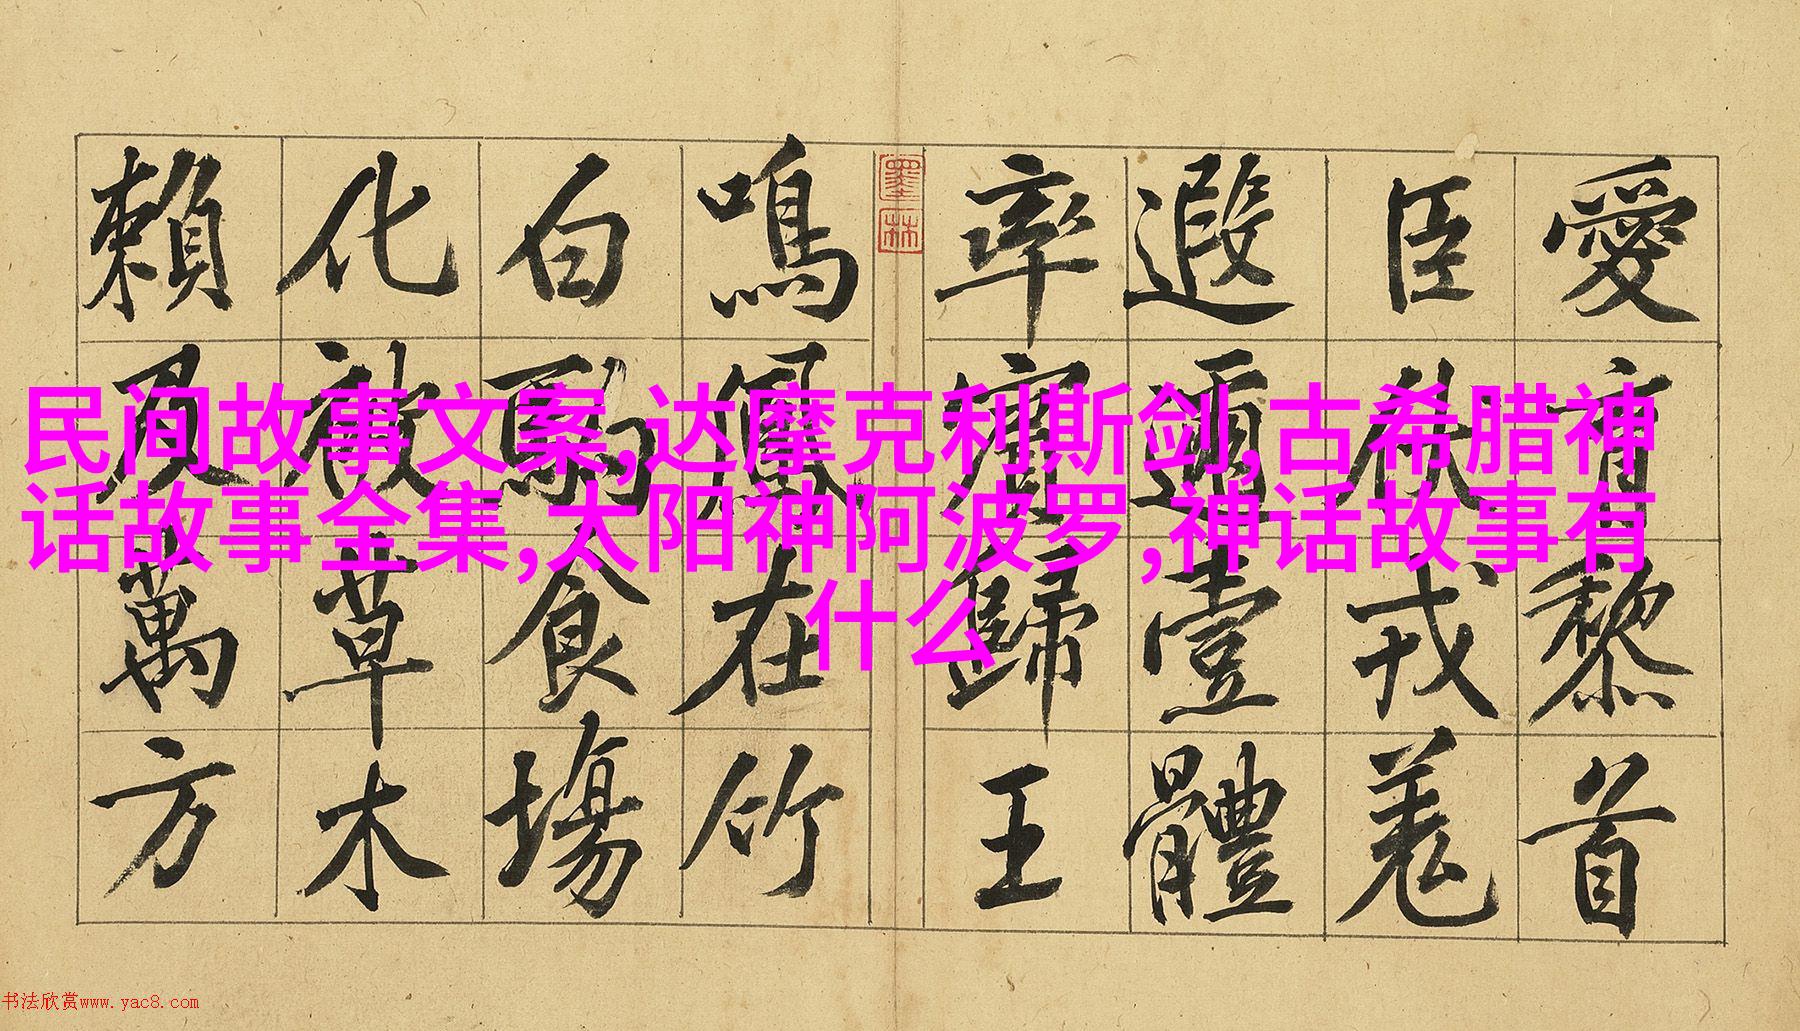 愛育黎首
臣伏戎羌
遐邇壹體
率賓歸王
墨林
鳴鳳在竹
白駒食場
化被草木
賴及萬方
民间故事文案,达摩克利斯剑,古希腊神
话故事全集,太阳神阿波罗,神话故事有
什么
书法欣赏www.yac8.com